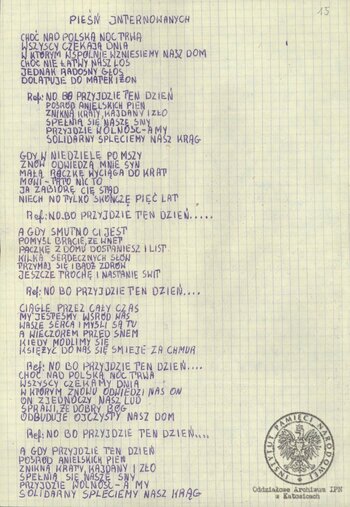 15
PIEŚŃ INTERNOWANYCH
CHOĆ NAD POLSKĄ NOC TRWA
WSZYSCY CZEKAJĄ DNIA
W KTÓRYM WSPÓLNIE WZNIESIEMY NASZ DOM
CHOĆ NIE ŁATWY NASZ LOS
JEDNAK RADOSNY GŁOS
DOLATUJE DO MATEK I ŻON
Ref: NO BO PRZYJDZIE TEN DZIEŃ
POŚRÓD ANIELSKICH PIEŃ
ZNIKNĄ KRATY, KAJDANY I ZŁO
SPEŁNIĄ SIĘ NASZE SNY
PRZYJDZIE WOLNOŚĆ - A MY
SOLIDARNY SPLECIEMY NASZ KRĄG
GDY W NIEDZIELĘ PO MSZY
ZNÓW ODWIEDZA MNIE SYN
MAŁĄ RĄCZKĘ WYCIĄGA DO KRAT
MÓWI - TATO NIC TO
JA ZABIORĘ CIĘ STĄD
NIECH NO TYLKO SKOŃCZĘ PIĘĆ LAT
Ref: NO BO PRZYJDZIE TEN DZIEŃ.....
A GDY SMUTNO CI JEST
POMYŚL BRACIE, ŻE WNET
PACZKĘ Z DOMU DOSTANIESZ I LIST
KILKA SERDECZNYCH SŁÓW
TRZYMAJ SIĘ I BĄDŹ ZDRÓW
JESZCZE TROCHĘ I NASTANIE ŚWIT
Ref: NO BO PRZYJDZIE TEN DZIEŃ....
CIĄGLE PRZEZ CAŁY CZAS
MY JESTEŚMY WŚRÓD WAS
WASZE SERCA I MYŚLI SĄ TU
A WIECZOREM PRZED SNEM
KIEDY MODLIMY SIĘ
KSIĘŻYC DO NAS SIĘ ŚMIEJE ZA CHMUR
Ref: NO BO PRZYJDZIE TEN DZIEŃ....
CHOĆ NAD POLSKĄ NOC TRWA
WSZYSCY CZEKAMY DNIA
W KTÓRYM ZNOWU ODWIEDZI NAS ON
ON ZJEDNOCZY NASZ LUD
SPRAWI, ŻE DOBRY BÓG
ODBUDUJE OJCZYSTY NASZ DOM
Ref: NO BO PRZYJDZIE TEN DZIEŃ....
A GDY PRZYJDZIE TEN DZIEŃ
POŚRÓD ANIELSKICH PIEŃ
ZNIKNĄ KRATY, KAJDANY I ZŁO
SPEŁNIĄ SIĘ NASZE SNY
PRZYJDZIE WOLNOŚĆ - A MY
SOLIDARNY SPLECIEMY NASZ KRĄG
INSTYTUT PAMIĘCI NARODOWEJ
Oddziałowe Archiwum IPN
w Katowicach